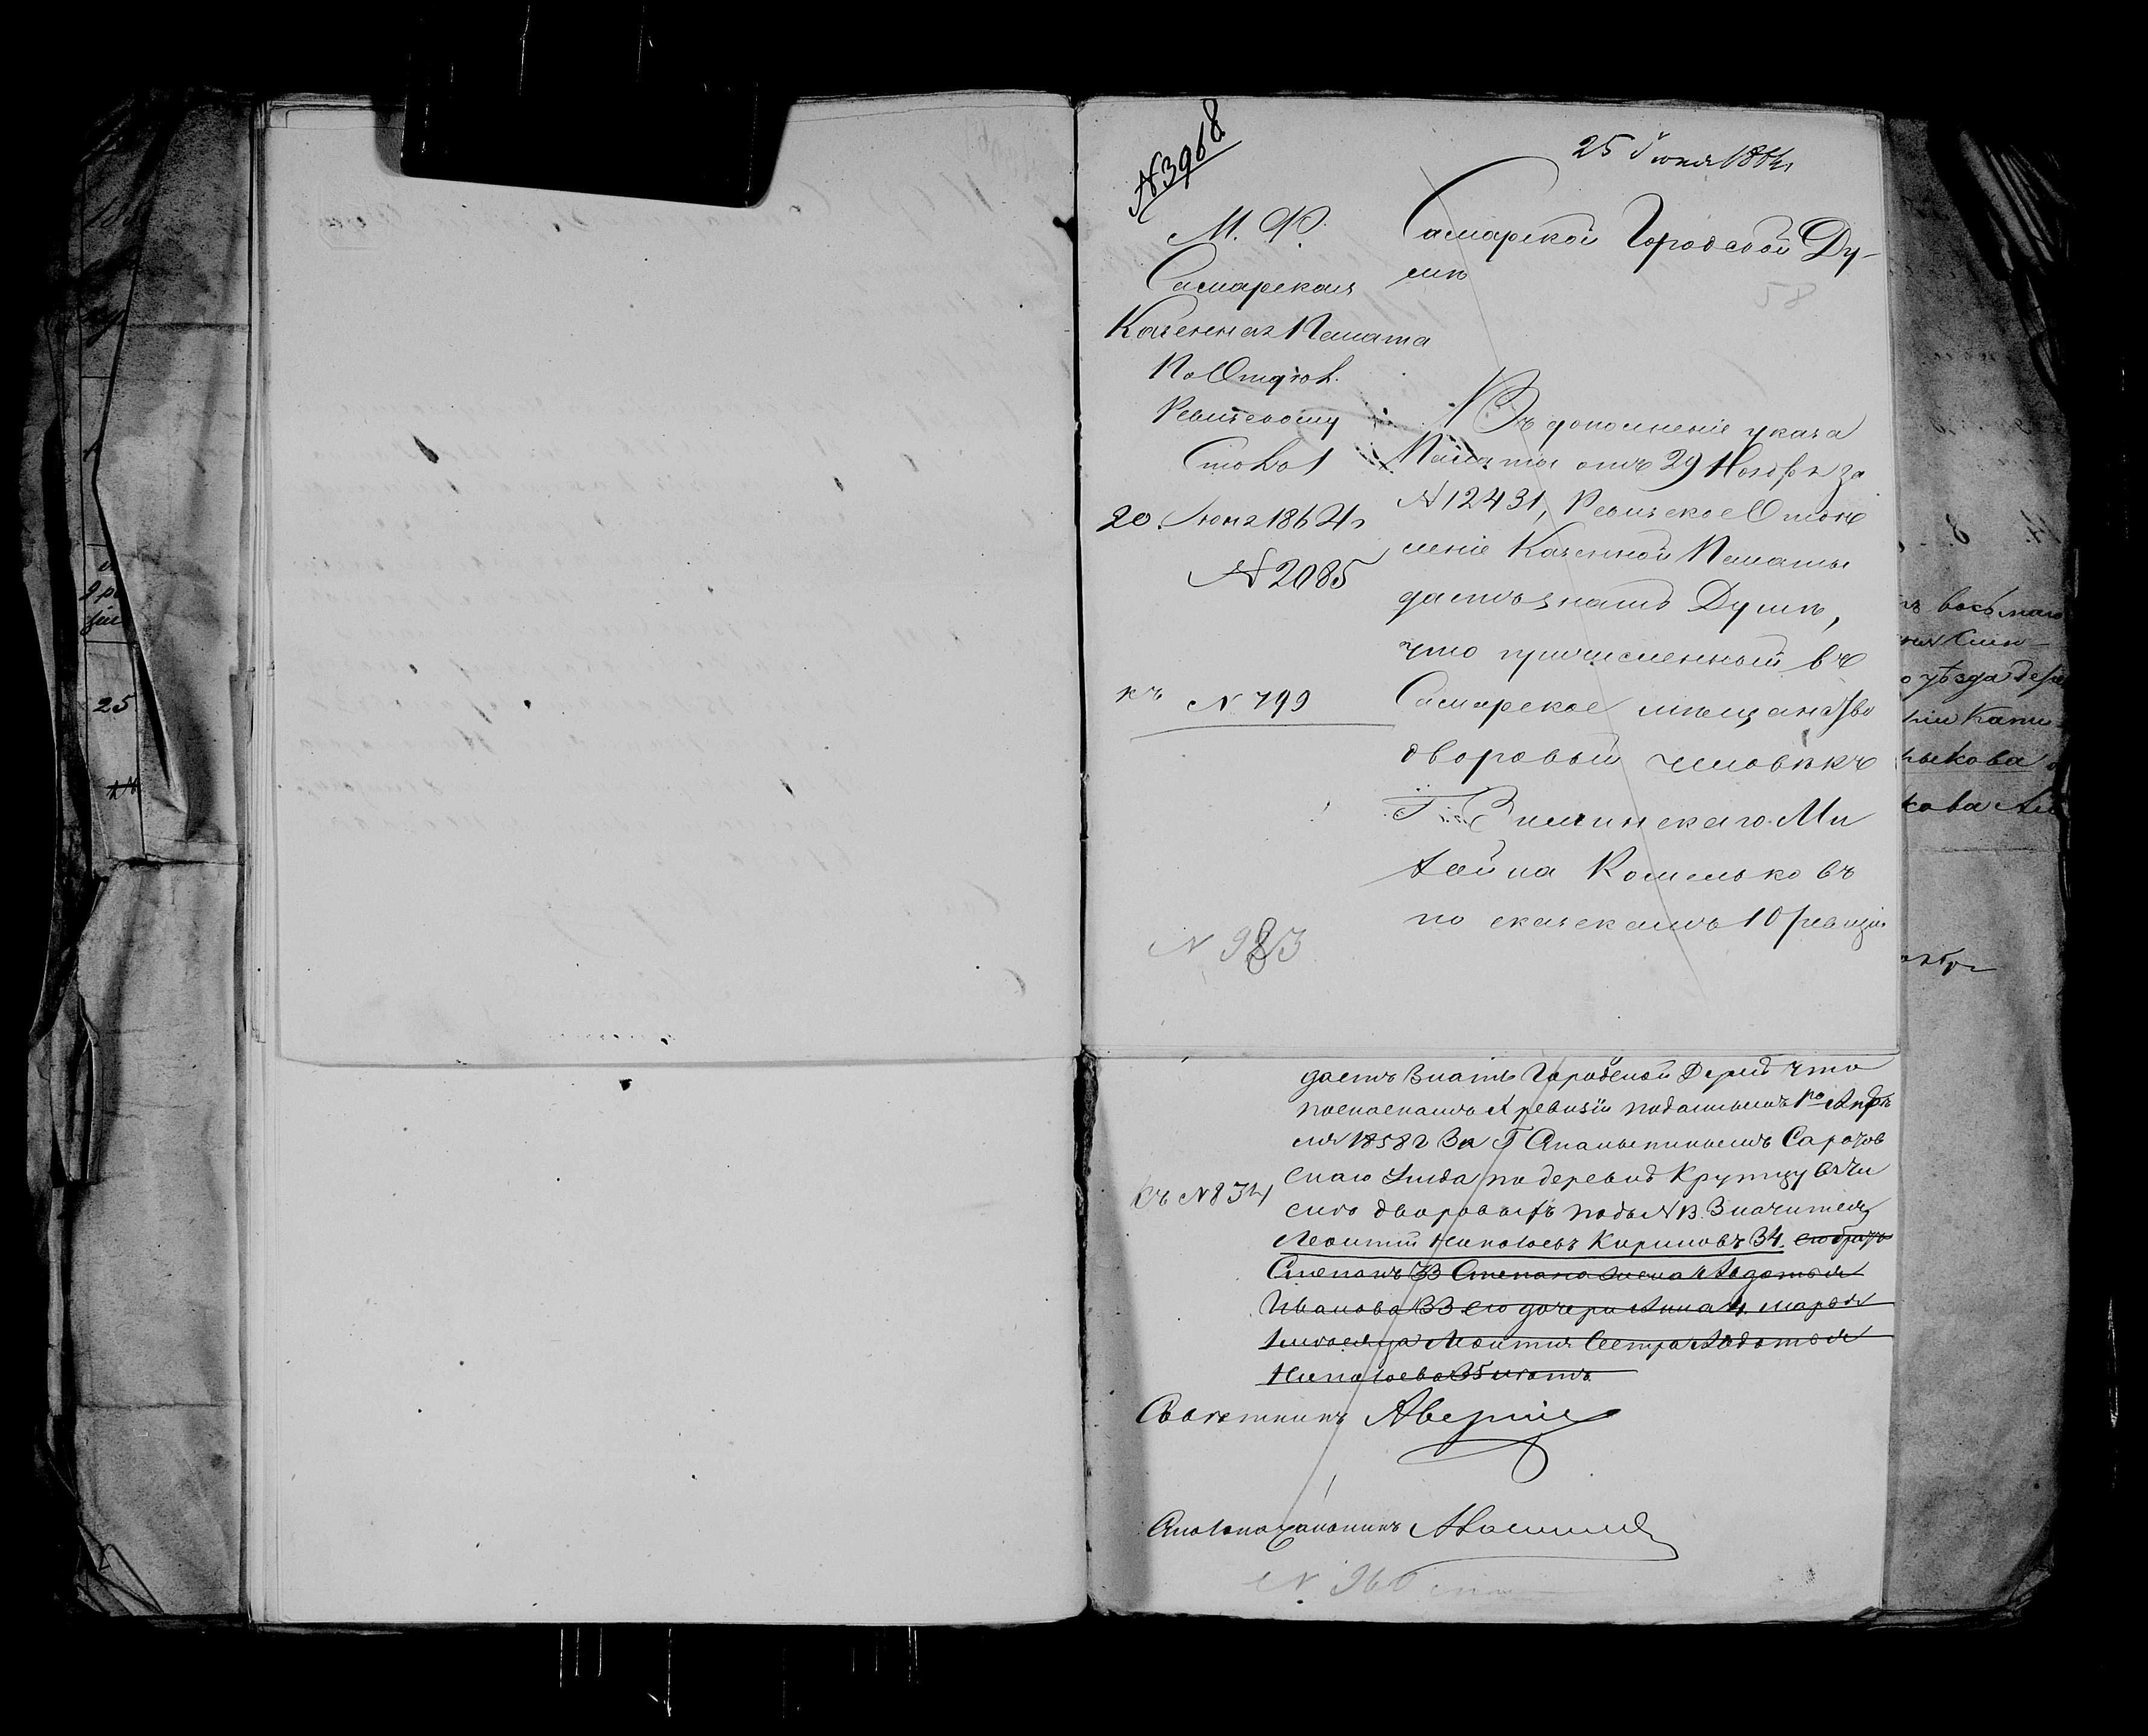 N 3968
25 Июня 1864 г
М. Ф.
Самарская
Казенная Палата
По Отдѣл.
Ревизскому
Столъ 1
20 Июня 1864 г
N 2085
къ N 799
N 983
Самарской Городской Ду-
мѣ
58
Въ дополненіе указа
Палаты отъ 29 Ноября за
N 12431, Ревизское Отдѣ
леніе Казенной Палаты
даетъ знать Думѣ,
что причисленный въ
Самарское мѣщанство
дворовый человѣкъ
Г. Зиминскаго Ми
хайла Кошельковъ
по сказкамъ 10 ревизіи
даетъ Знать Городской Думѣ что
по сказкамъ X ревизіи поданнымъ 1го Апрѣ
ля 1858 г За Г
скаго Уѣзда по деревнѣ Крутцу въ чи
слѣ дворовыхъ подъ N 13. Значится
Леонтій Николаевъ Кириловъ 34. его братъ
Степанъ 33 Степана жена Авдотья
Иванова 33 его дочери Анна 4. Марья
1 мѣсяца Леонтия Сестра Авдотья
Николаева 35 лѣтъ
къ N 834
Совѣтникъ Аверкіе
Столоначальникъ
N 960
восьмаго
уѣзда
25